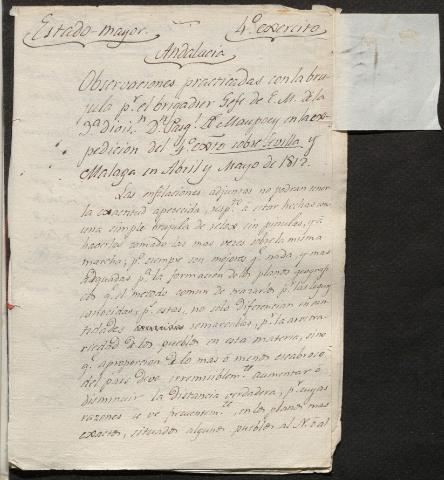 Estado-mayor. 4.º exercito
Andalucia
Observaciones practicadas con la bru-
jula p.r el brigadier Gefe de E. M. de la
2.a divis.n D.n Juaq.n M.e Maupoey en la ex-
pedicion del 4.º ex.to sobre Sevilla y
Malaga en Abril y Mayo de 1812.
Las enfilaciones adjuntas no podran tener
la exactitud apetecida, resp.to a estar hechas con
una simple brujula de relox sin pinulas, y a
haverlas tomado las mas veces sobre la misma
marcha; p.o siempre son mejores q.e nada, y mas
adquadas p.a la formacion de los planos geografi-
cos q.e el metodo comun de trazarlos p.r las leguas
conocidas, p.s estas, no solo diferencian en can-
tidades semarcables, p.r la arvitra-
riedad de los pueblos en esta materia, sino
q.e aproporcion de lo mas ó menos escabroso
del pais deve irremisiblem.te aumentar ó
disminuir la distancia verdadera; p.r cuyas
razones se ve frecuentem.te en los planos mas
exactos, situados algunos pueblos al N. ó al